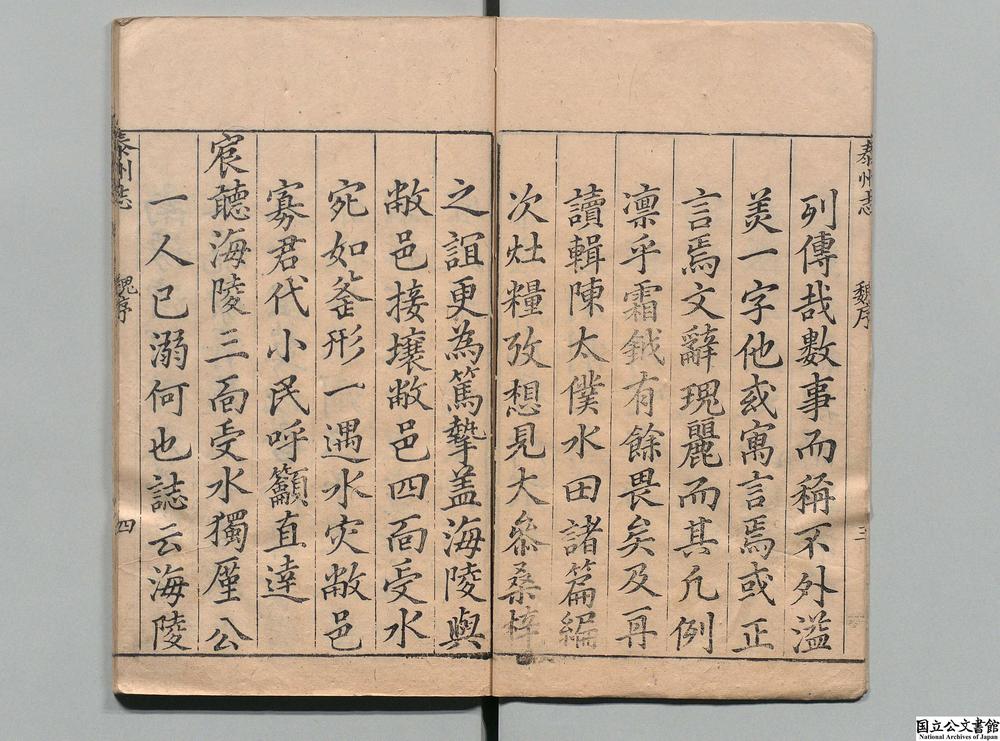 泰州志 魏序 三
列傳哉數事而稱不外溢
美一字他或寓言焉或正
言焉文辭瑰麗而其凡例
凛乎霜鉞有餘畏矣及再
讀輯陳太僕水田諸篇編
次灶糧攷想見大叅桑梓
之誼更為篤摯盖海陵與
敝邑接壤敝邑四面受水
宛如釜形一遇水灾敝邑
寡君代小民呼籲直達
宸聽海陵三面受水獨廑公
一人已溺何也誌云海陵
泰州志 魏序 四
国立公文書館
National Archives of Japan